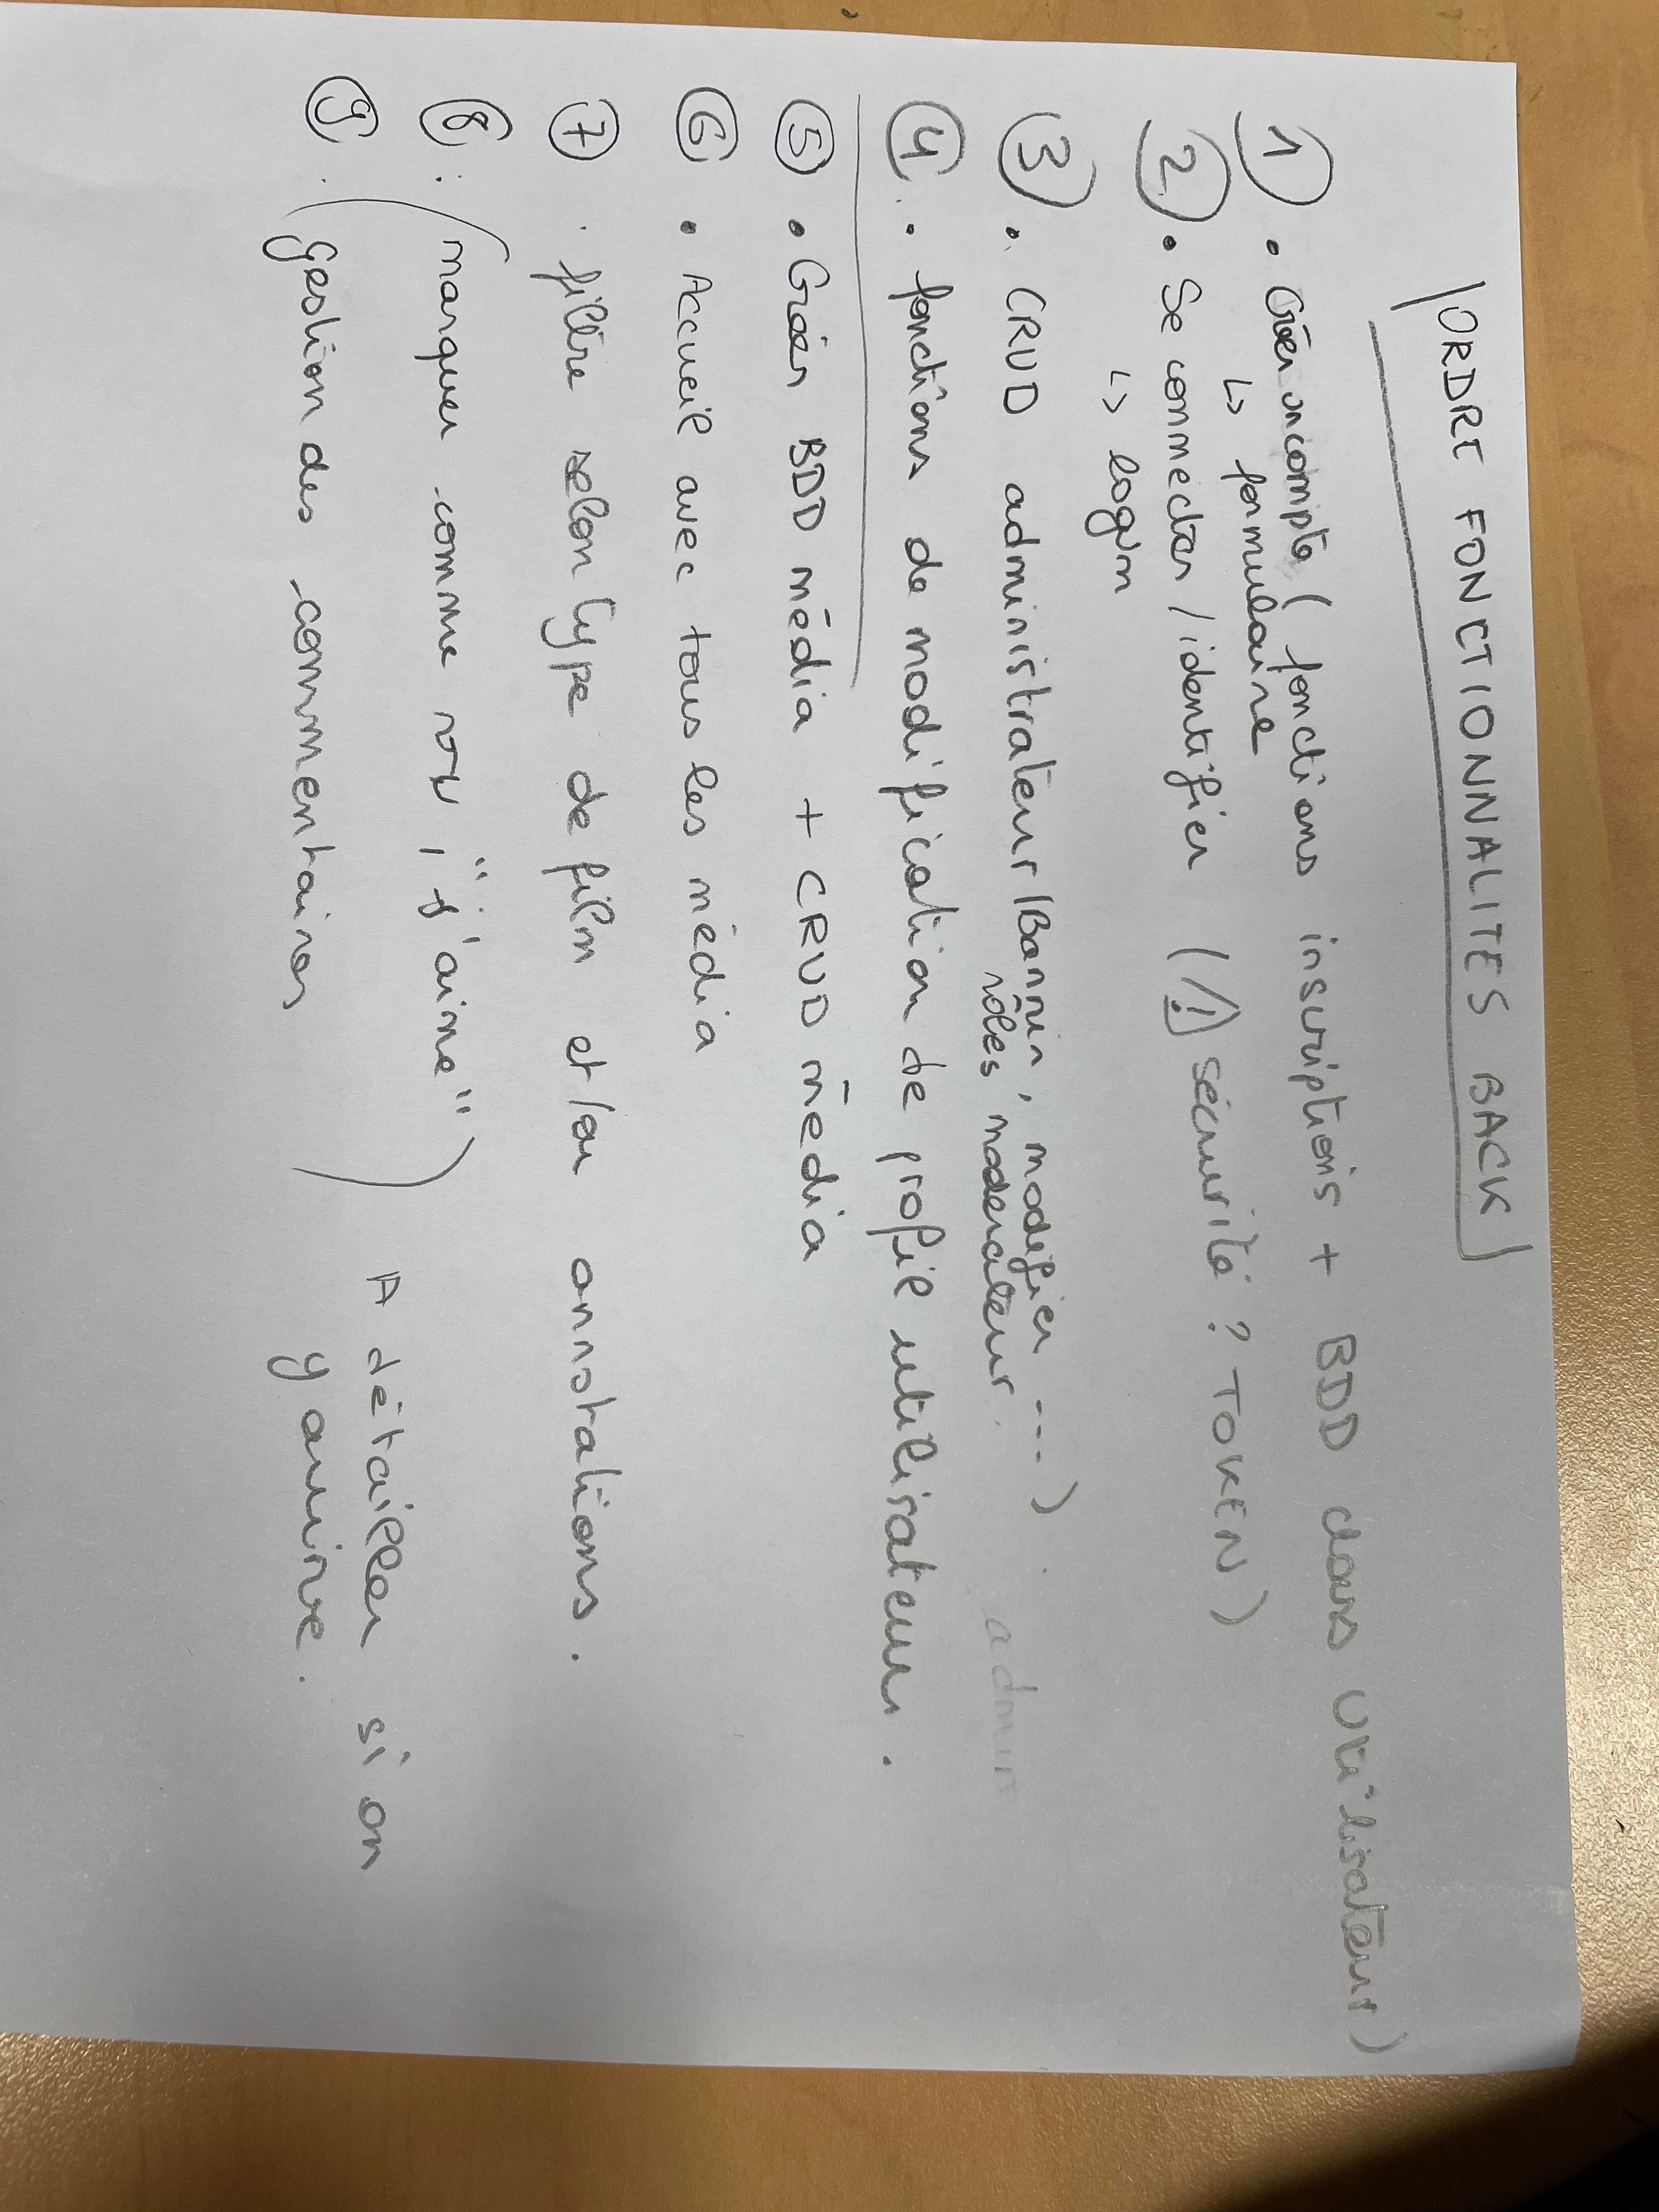 ORDRE FONCTIONNALITES BACK
① • Créer un compte ( fonctions inscriptions + BDD class Utilisateur)
↳ formulaire
② • Se connecter / identifier (⚠ sécurité ? TOKEN)
↳ login
③ • CRUD administrateur (Bannir, modifier ---)
rôles moderateur. admin
④ • fonctions de modification de profil utilisateur.
⑤ • Créer BDD média + CRUD média
⑥ • Accueil avec tous les média
⑦ • filtre selon type de film et/ou annotations.
⑧ : (marquer comme vu, "j'aime")
⑨ . (gestion des commentaires)
A détailler si on
y arrive.